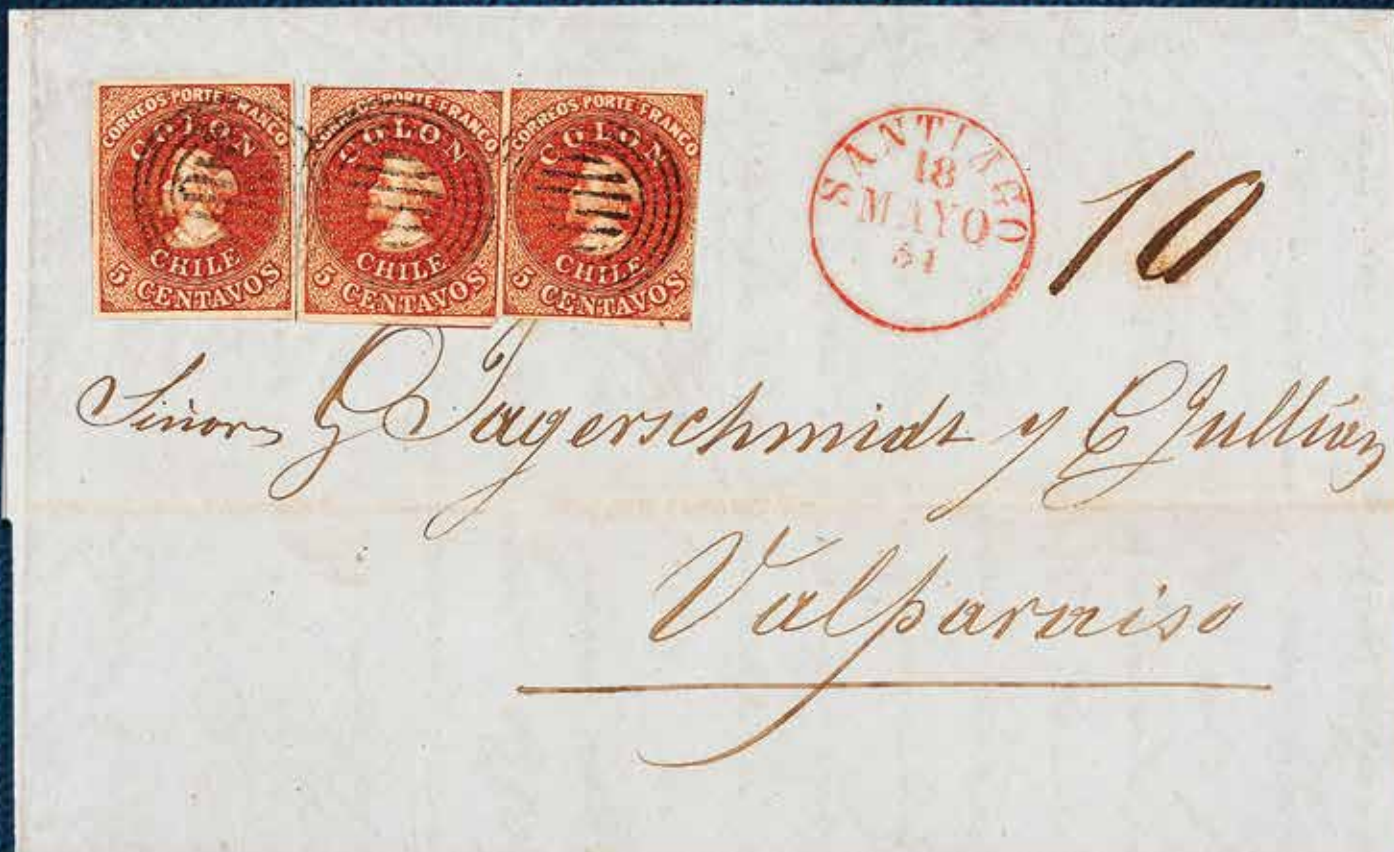 CORREOS PORTE FRANCO
COLON
CHILE
5 CENTAVOS
CORREOS PORTE FRANCO
COLON
CHILE
5 CENTAVOS
CORREOS PORTE FRANCO
COLON
CHILE
5 CENTAVOS
SANTIAGO
18
MAYO
54
10
Jagerschmidt y C Jullian
Valparaiso